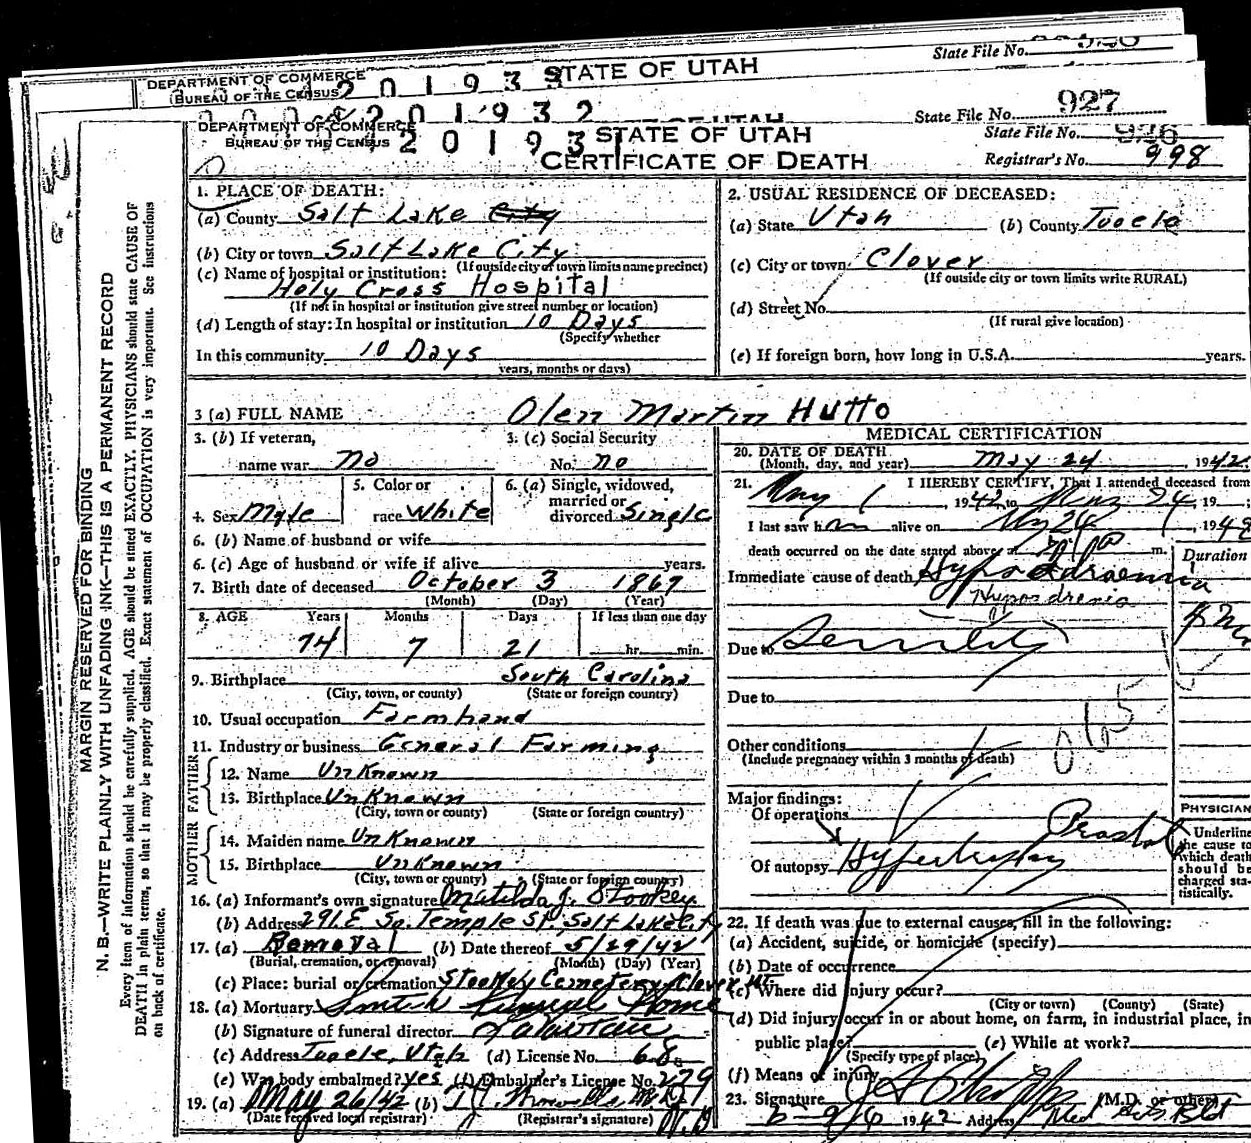 STATE OF UTAH
State File No.
DEPARTMENT OF COMMERCE
BUREAU OF THE CENSUS
2 0 1 9 3
2 0 1 9 3 2
State File No. 927
DEPARTMENT OF COMMERCE
BUREAU OF THE CENSUS
2 0 1 9 3 1
STATE OF UTAH
CERTIFICATE OF DEATH
State File No. 926
Registrar's No. 998
MARGIN RESERVED FOR BINDING
N. B.—WRITE PLAINLY WITH UNFADING INK—THIS IS A PERMANENT RECORD
Every item of information should be carefully supplied. AGE should be stated EXACTLY. PHYSICIANS should state CAUSE OF
DEATH in plain terms, so that it may be properly classified. Exact statement of OCCUPATION is very important. See instructions
on back of certificate.
1. PLACE OF DEATH:
(a) County Salt Lake City
(b) City or town Salt Lake City
(If outside city or town limits name precinct)
(c) Name of hospital or institution:
Holy Cross Hospital
(If not in hospital or institution give street number or location)
(d) Length of stay: In hospital or institution 10 Days
(Specify whether
In this community 10 Days
years, months or days)
2. USUAL RESIDENCE OF DECEASED:
(a) State Utah (b) County Tooele
(c) City or town Clover
(If outside city or town limits write RURAL)
(d) Street No.
(If rural give location)
(e) If foreign born, how long in U.S.A. years.
3 (a) FULL NAME Olen Martin Hutto
3. (b) If veteran,
name war no
3. (c) Social Security
No. no
4. Sex Male
5. Color or
race White
6. (a) Single, widowed,
married or
divorced Single
6. (b) Name of husband or wife
6. (c) Age of husband or wife if alive years.
7. Birth date of deceased October 3 1867
(Month) (Day) (Year)
8. AGE Years Months Days If less than one day
74 7 21 hr. min.
9. Birthplace South Carolina
(City, town, or county) (State or foreign country)
10. Usual occupation Farmhand
11. Industry or business General Farming
FATHER
12. Name UnKnown
13. Birthplace UnKnown
(City, town or county) (State or foreign country)
MOTHER
14. Maiden name UnKnown
15. Birthplace UnKnown
(City, town or county) (State or foreign country)
16. (a) Informant's own signature Matilda J. Stookey
(b) Address 291 E. So. Temple St. Salt Lake City
17. (a) Removal (b) Date thereof 5/29/42
(Burial, cremation, or removal) (Month) (Day) (Year)
(c) Place: burial or cremation Stookey Cemetery, Clover Ut.
18. (a) Mortuary Smith Funeral Home
(b) Signature of funeral director
(c) Address Tooele, Utah (d) License No. 68
(e) Was body embalmed? yes (f) Embalmer's License No. 279
19. (a) May 26/42 (b)
(Date received local registrar) (Registrar's signature)
MEDICAL CERTIFICATION
20. DATE OF DEATH
(Month, day, and year) May 24, 1942
21. I HEREBY CERTIFY, That I attended deceased from
May 1, 1942 to May 24, 19
I last saw him alive on May 24, 1942
death occurred on the date stated above at m.
Duration
Immediate cause of death Hypoadrenia
Hypoadrenia
Due to Senility
Due to
Other conditions
(Include pregnancy within 3 months of death)
Major findings:
Of operations
Of autopsy Hypertrophy Prostate
PHYSICIAN
Underline
the cause to
which death
should be
charged sta-
tistically.
22. If death was due to external causes, fill in the following:
(a) Accident, suicide, or homicide (specify)
(b) Date of occurrence
(c) Where did injury occur?
(City or town) (County) (State)
(d) Did injury occur in or about home, on farm, in industrial place, in
public place? (e) While at work?
(Specify type of place)
(f) Means of injury
23. Signature (M.D. or other)
1942 Address Med Arts Bld